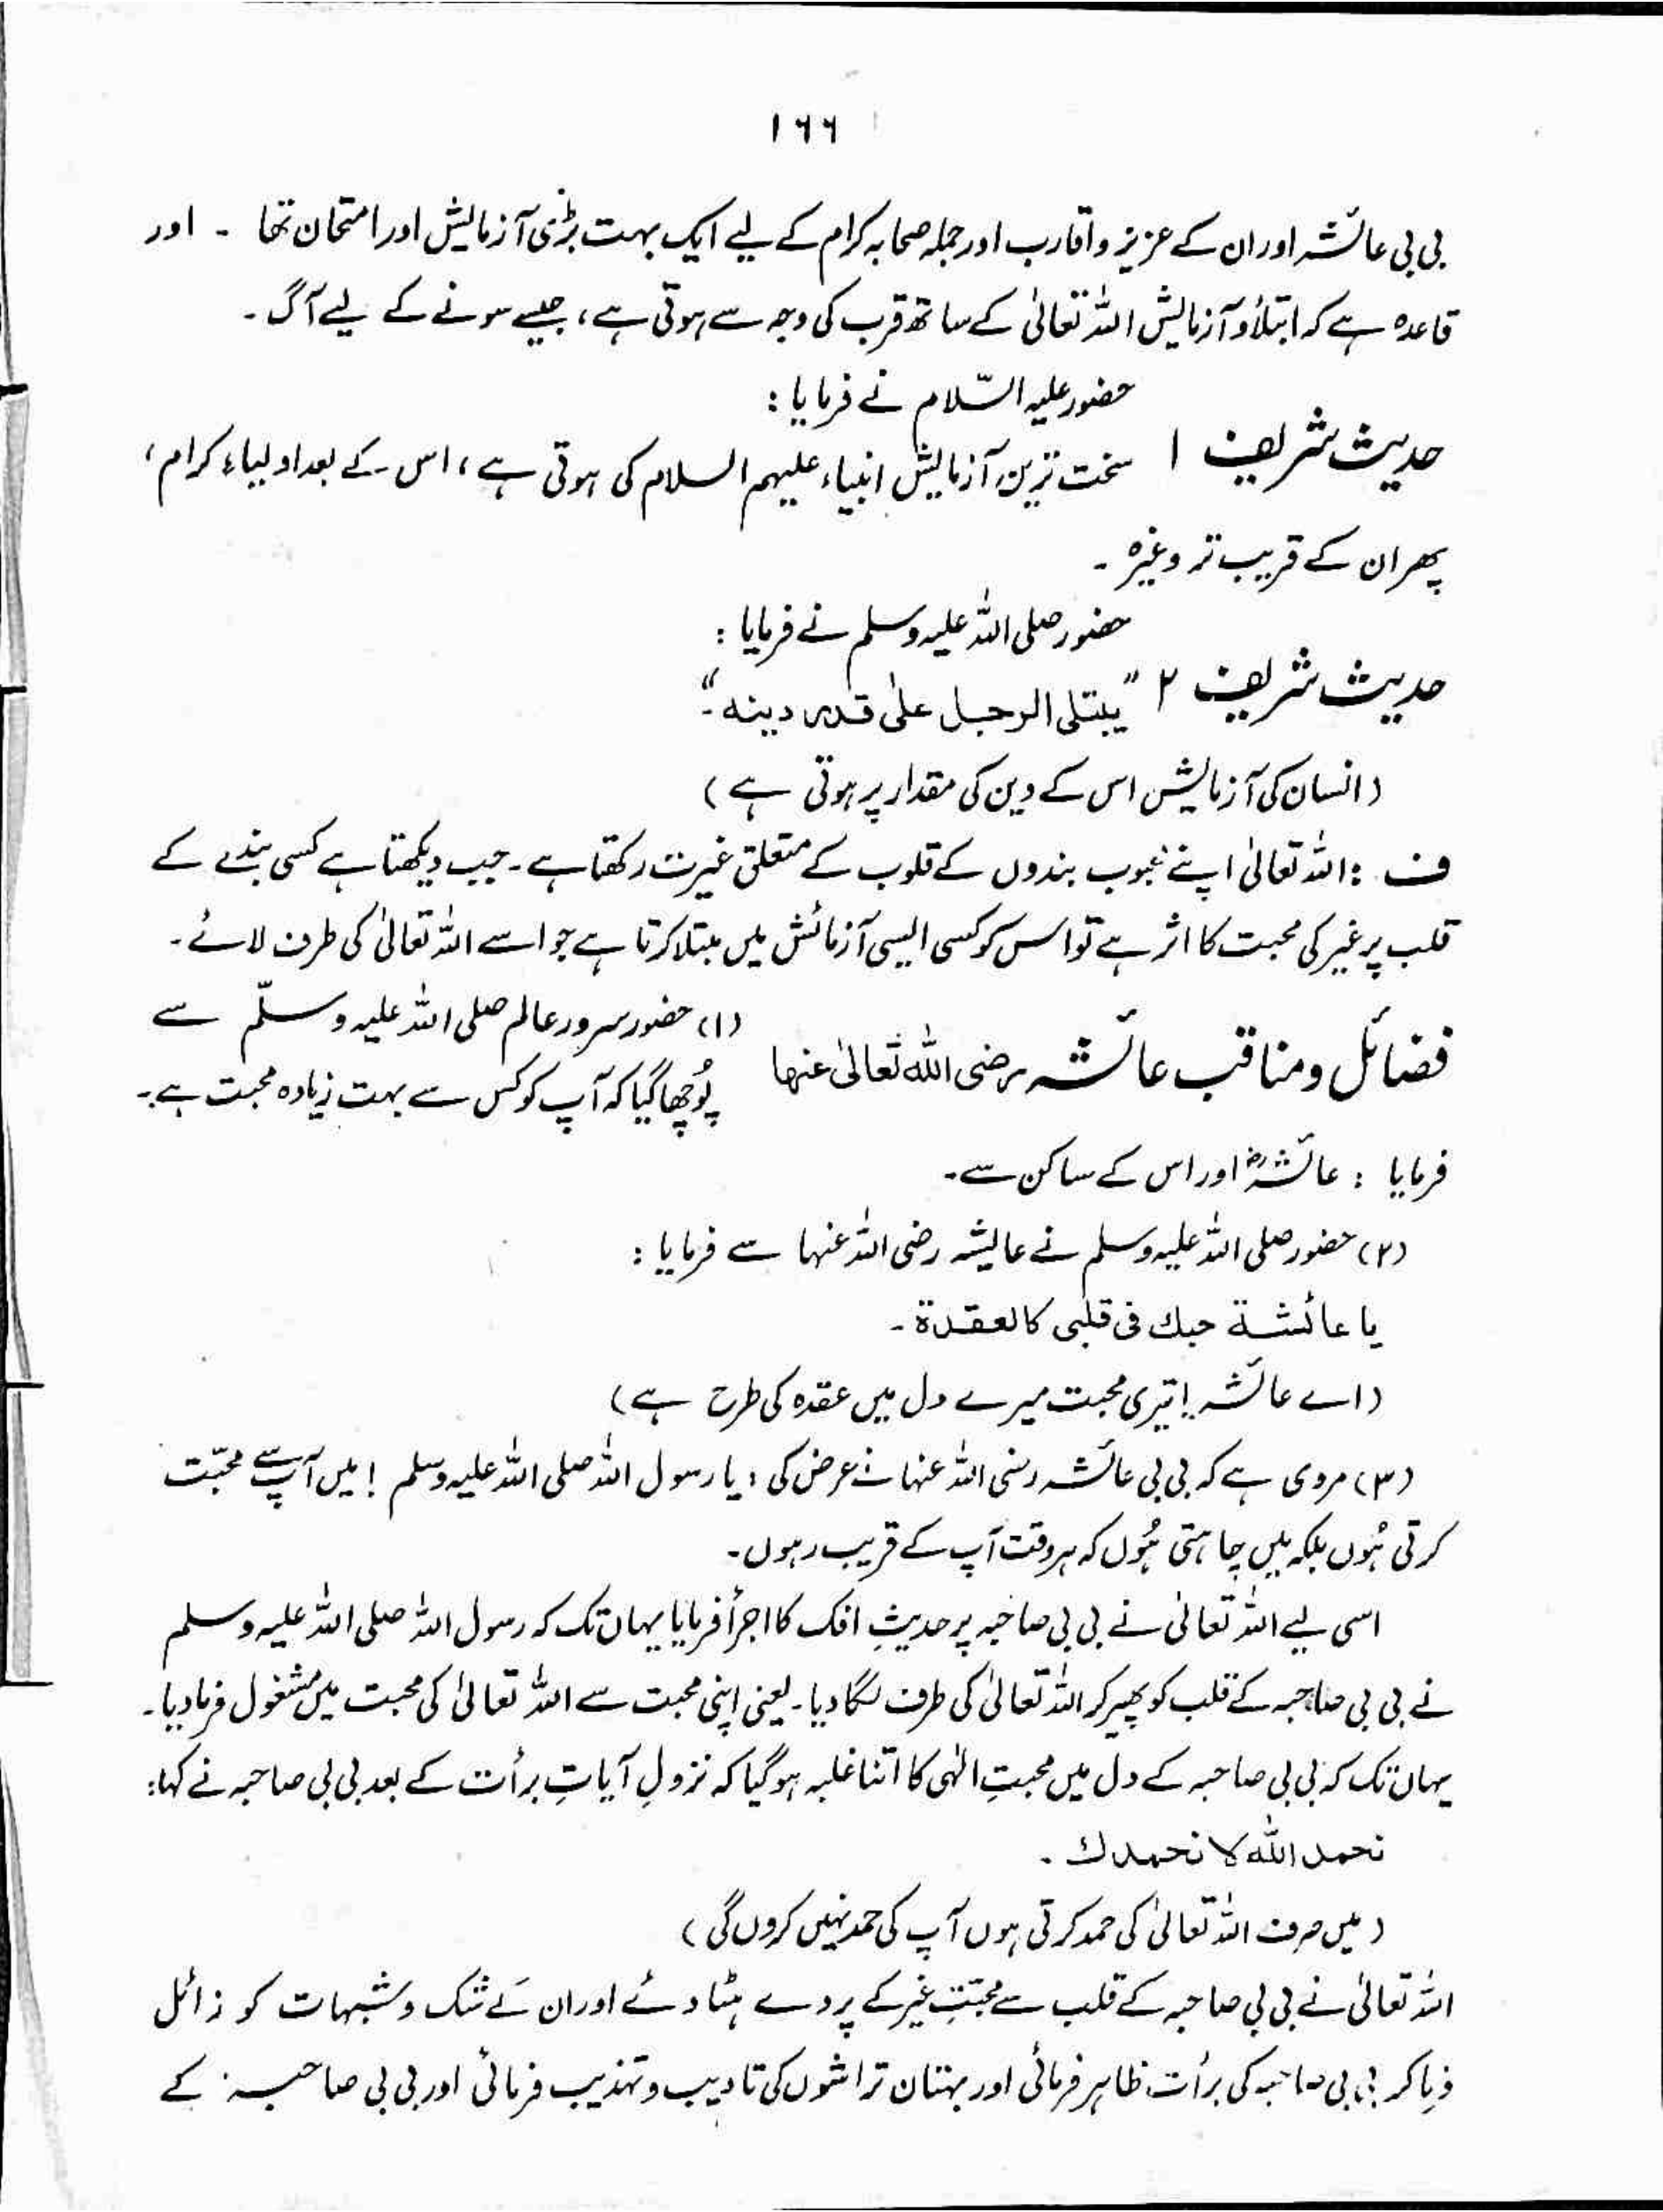 ۱۶۶
بی بی عائشہ اور ان کے عزیز و اقارب اور جملہ صحابہ کرام کے لیے ایک بہت بڑی آزمایش اور امتحان تھا ۔ اور
قاعدہ ہے کہ ابتلأ و آزمایش اللہ تعالیٰ کے ساتھ قرب کی وجہ سے ہوتی ہے، جیسے سونے کے لیے آگ ۔
حضور علیہ السّلام نے فرمایا :
حدیث شریف ۱ سخت ترین آزمایش انبیاء علیہم السلام کی ہوتی ہے، اس کے بعد اولیاء کرام،
پھر ان کے قریب تر وغیرہ ۔
حضور صلی اللہ علیہ وسلم نے فرمایا :
حدیث شریف ۲ "یبتلی الرجل علیٰ قدر دینہ۔"
(انسان کی آزمایش اس کے دین کی مقدار پر ہوتی ہے)
ف : اللہ تعالیٰ اپنے محبوب بندوں کے قلوب کے متعلق غیرت رکھتا ہے ۔ جب دیکھتا ہے کسی بندے کے
قلب پر غیر کی محبت کا اثر ہے تو اس کو کسی ایسی آزمائش میں مبتلا کرتا ہے جو اسے اللہ تعالیٰ کی طرف لائے ۔
فضائل و مناقب عائشہ رضی اللہ تعالیٰ عنہا (۱) حضور سرور عالم صلی اللہ علیہ وسلّم سے
پُوچھا گیا کہ آپ کو کس سے بہت زیادہ محبت ہے ۔
فرمایا : عائشہؓ اور اس کے ساکن سے ۔
(۲) حضور صلی اللہ علیہ وسلم نے عایشہ رضی اللہ عنہا سے فرمایا :
یا عائشة حبك فی قلبی كالعقدة ۔
(اے عائشہ! تیری محبت میرے دل میں عقدہ کی طرح ہے)
(۳) مروی ہے کہ بی بی عائشہ رضی اللہ عنہا نے عرض کی : یا رسول اللہ صلی اللہ علیہ وسلم ! میں آپ سے محبّت
کرتی ہُوں بلکہ میں چاہتی ہُوں کہ ہر وقت آپ کے قریب رہوں ۔
اسی لیے اللہ تعالیٰ نے بی بی صاحبہ پر حدیثِ افک کا اجرأ فرمایا یہاں تک کہ رسول اللہ صلی اللہ علیہ وسلم
نے بی بی صاحبہ کے قلب کو پھیر کر اللہ تعالیٰ کی طرف لگا دیا ۔ یعنی اپنی محبت سے اللہ تعالیٰ کی محبت میں مشغول فرما دیا ۔
یہاں تک کہ بی بی صاحبہ کے دل میں محبتِ الٰہی کا اتنا غلبہ ہو گیا کہ نزولِ آیاتِ برأت کے بعد بی بی صاحبہ نے کہا :
نحمد اللہ لا نحمدك ۔
(میں صرف اللہ تعالیٰ کی حمد کرتی ہوں آپ کی حمد نہیں کروں گی)
اللہ تعالیٰ نے بی بی صاحبہ کے قلب سے محبّتِ غیر کے پردے ہٹا دئے اور ان کے شک و شبہات کو زائل
فرما کر بی بی صاحبہ کی برأت ظاہر فرمائی اور بہتان تراشوں کی تادیب و تہذیب فرمائی اور بی بی صاحبہ کے